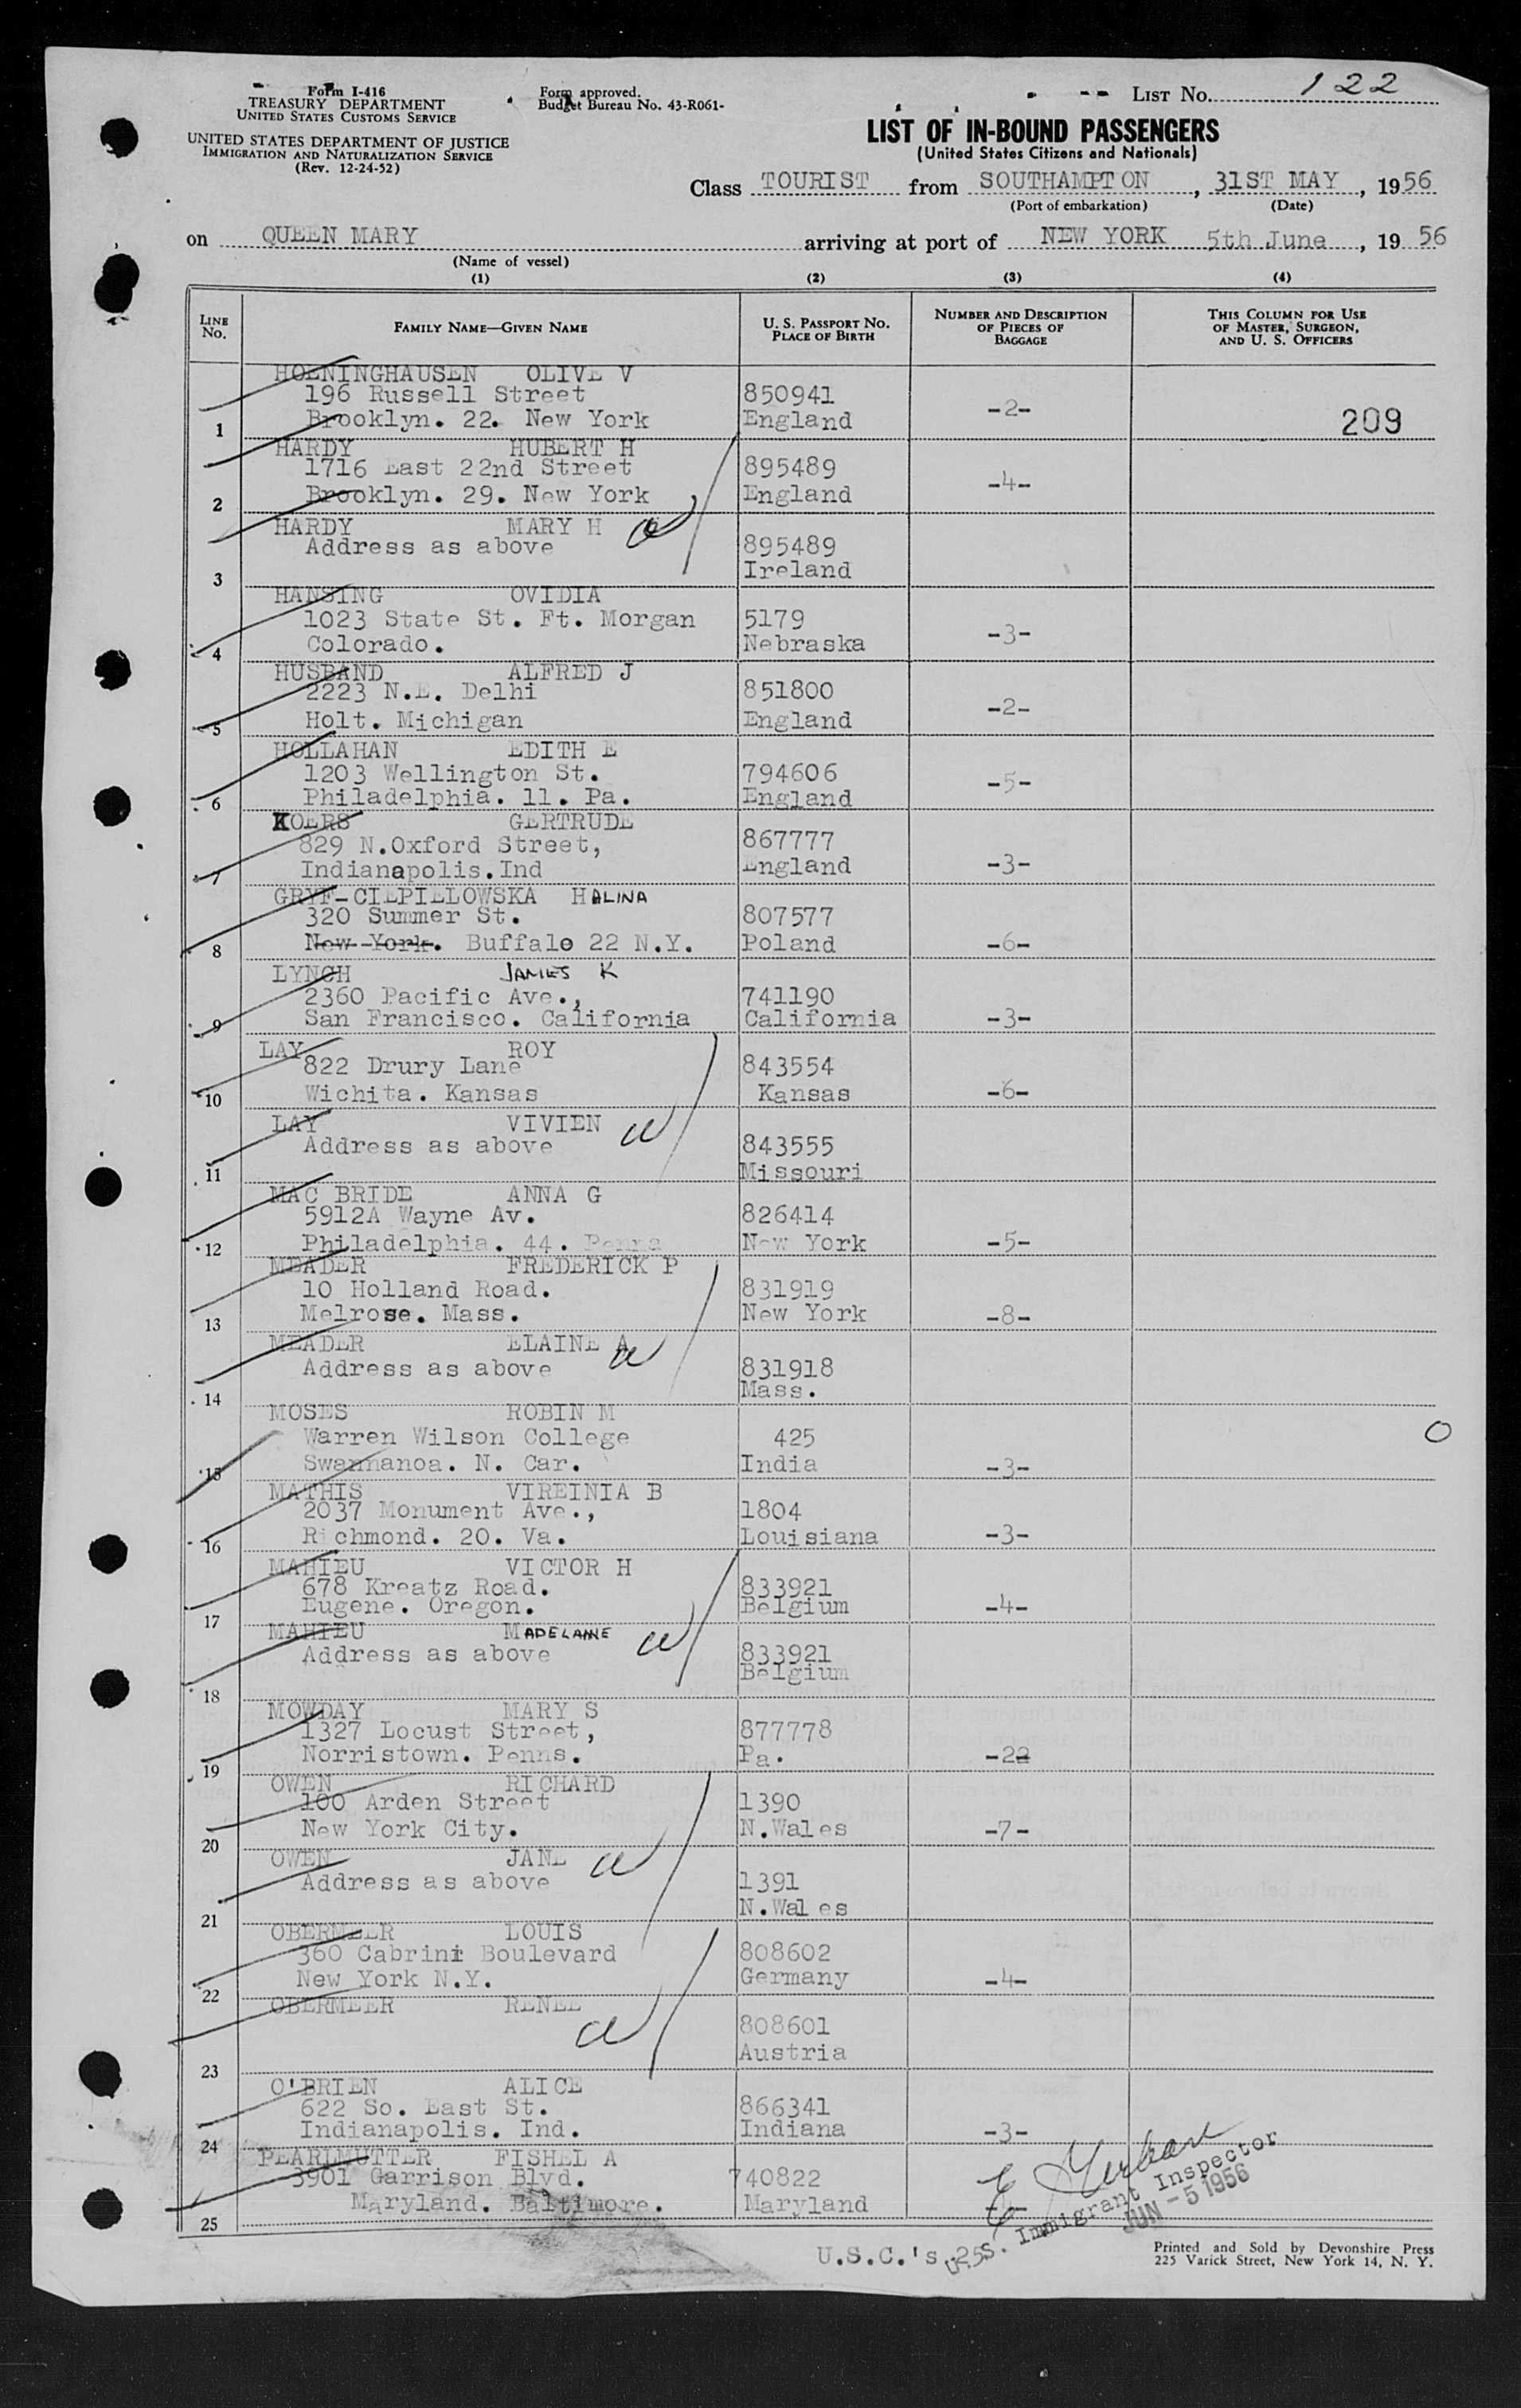 Form I-416
TREASURY DEPARTMENT
UNITED STATES CUSTOMS SERVICE
UNITED STATES DEPARTMENT OF JUSTICE
IMMIGRATION AND NATURALIZATION SERVICE
(Rev. 12-24-52)
Form approved.
Budget Bureau No. 43-R061-
LIST No. 122
LIST OF IN-BOUND PASSENGERS
(United States Citizens and Nationals)
Class TOURIST from SOUTHAMPTON, 31ST MAY, 1956
(Port of embarkation) (Date)
on QUEEN MARY arriving at port of NEW YORK 5th June, 19 56
(Name of vessel)
(1) (2) (3) (4)
LINE No. FAMILY NAME—GIVEN NAME U. S. PASSPORT NO. PLACE OF BIRTH NUMBER AND DESCRIPTION OF PIECES OF BAGGAGE THIS COLUMN FOR USE OF MASTER, SURGEON, AND U. S. OFFICERS
HOENINGHAUSEN OLIVE V
196 Russell Street 850941
1 Brooklyn. 22. New York England -2- 209
HARDY HUBERT H
1716 East 22nd Street 895489
2 Brooklyn. 29. New York England -4-
HARDY MARY H
Address as above 895489
3 Ireland
HANSING OVIDIA
1023 State St. Ft. Morgan 5179
4 Colorado. Nebraska -3-
HUSBAND ALFRED J
2223 N.E. Delhi 851800
5 Holt. Michigan England -2-
HOLLAHAN EDITH E
1203 Wellington St. 794606
6 Philadelphia. 11. Pa. England -5-
KOERS GERTRUDE
829 N.Oxford Street, 867777
7 Indianapolis.Ind England -3-
GRYF-CIEPIELOWSKA HALINA
320 Summer St. 807577
8 New York. Buffalo 22 N.Y. Poland -6-
LYNCH JAMES K
2360 Pacific Ave., 741190
9 San Francisco. California California -3-
LAY ROY
822 Drury Lane 843554
10 Wichita. Kansas Kansas -6-
LAY VIVIEN
Address as above 843555
11 Missouri
MAC BRIDE ANNA G
5912A Wayne Av. 826414
12 Philadelphia. 44. Penna New York -5-
MEADER FREDERICK P
10 Holland Road. 831919
13 Melrose. Mass. New York -8-
MEADER ELAINE A
Address as above 831918
14 Mass.
MOSES ROBIN M
Warren Wilson College 425
15 Swannanoa. N. Car. India -3-
MATHIS VIREINIA B
2037 Monument Ave., 1804
16 Richmond. 20. Va. Louisiana -3-
MAHIEU VICTOR H
678 Kreatz Road. 833921
17 Eugene. Oregon. Belgium -4-
MAHIEU MADELAINE
Address as above 833921
18 Belgium
MOWDAY MARY S
1327 Locust Street, 877778
19 Norristown. Penns. Pa. -2-
OWEN RICHARD
100 Arden Street 1390
20 New York City. N.Wales -7-
OWEN JANE
Address as above 1391
21 N.Wales
OBERMEER LOUIS
360 Cabrini Boulevard 808602
22 New York N.Y. Germany -4-
OBERMEER RENEE
808601
23 Austria
O'BRIEN ALICE
622 So. East St. 866341
24 Indianapolis. Ind. Indiana -3-
PEARLMUTTER FISHEL A
3901 Garrison Blvd. 740822
25 Maryland. Baltimore. Maryland
U.S. Immigrant Inspector
JUN - 5 1956
U.S.C.'s 25
Printed and Sold by Devonshire Press
225 Varick Street, New York 14, N. Y.